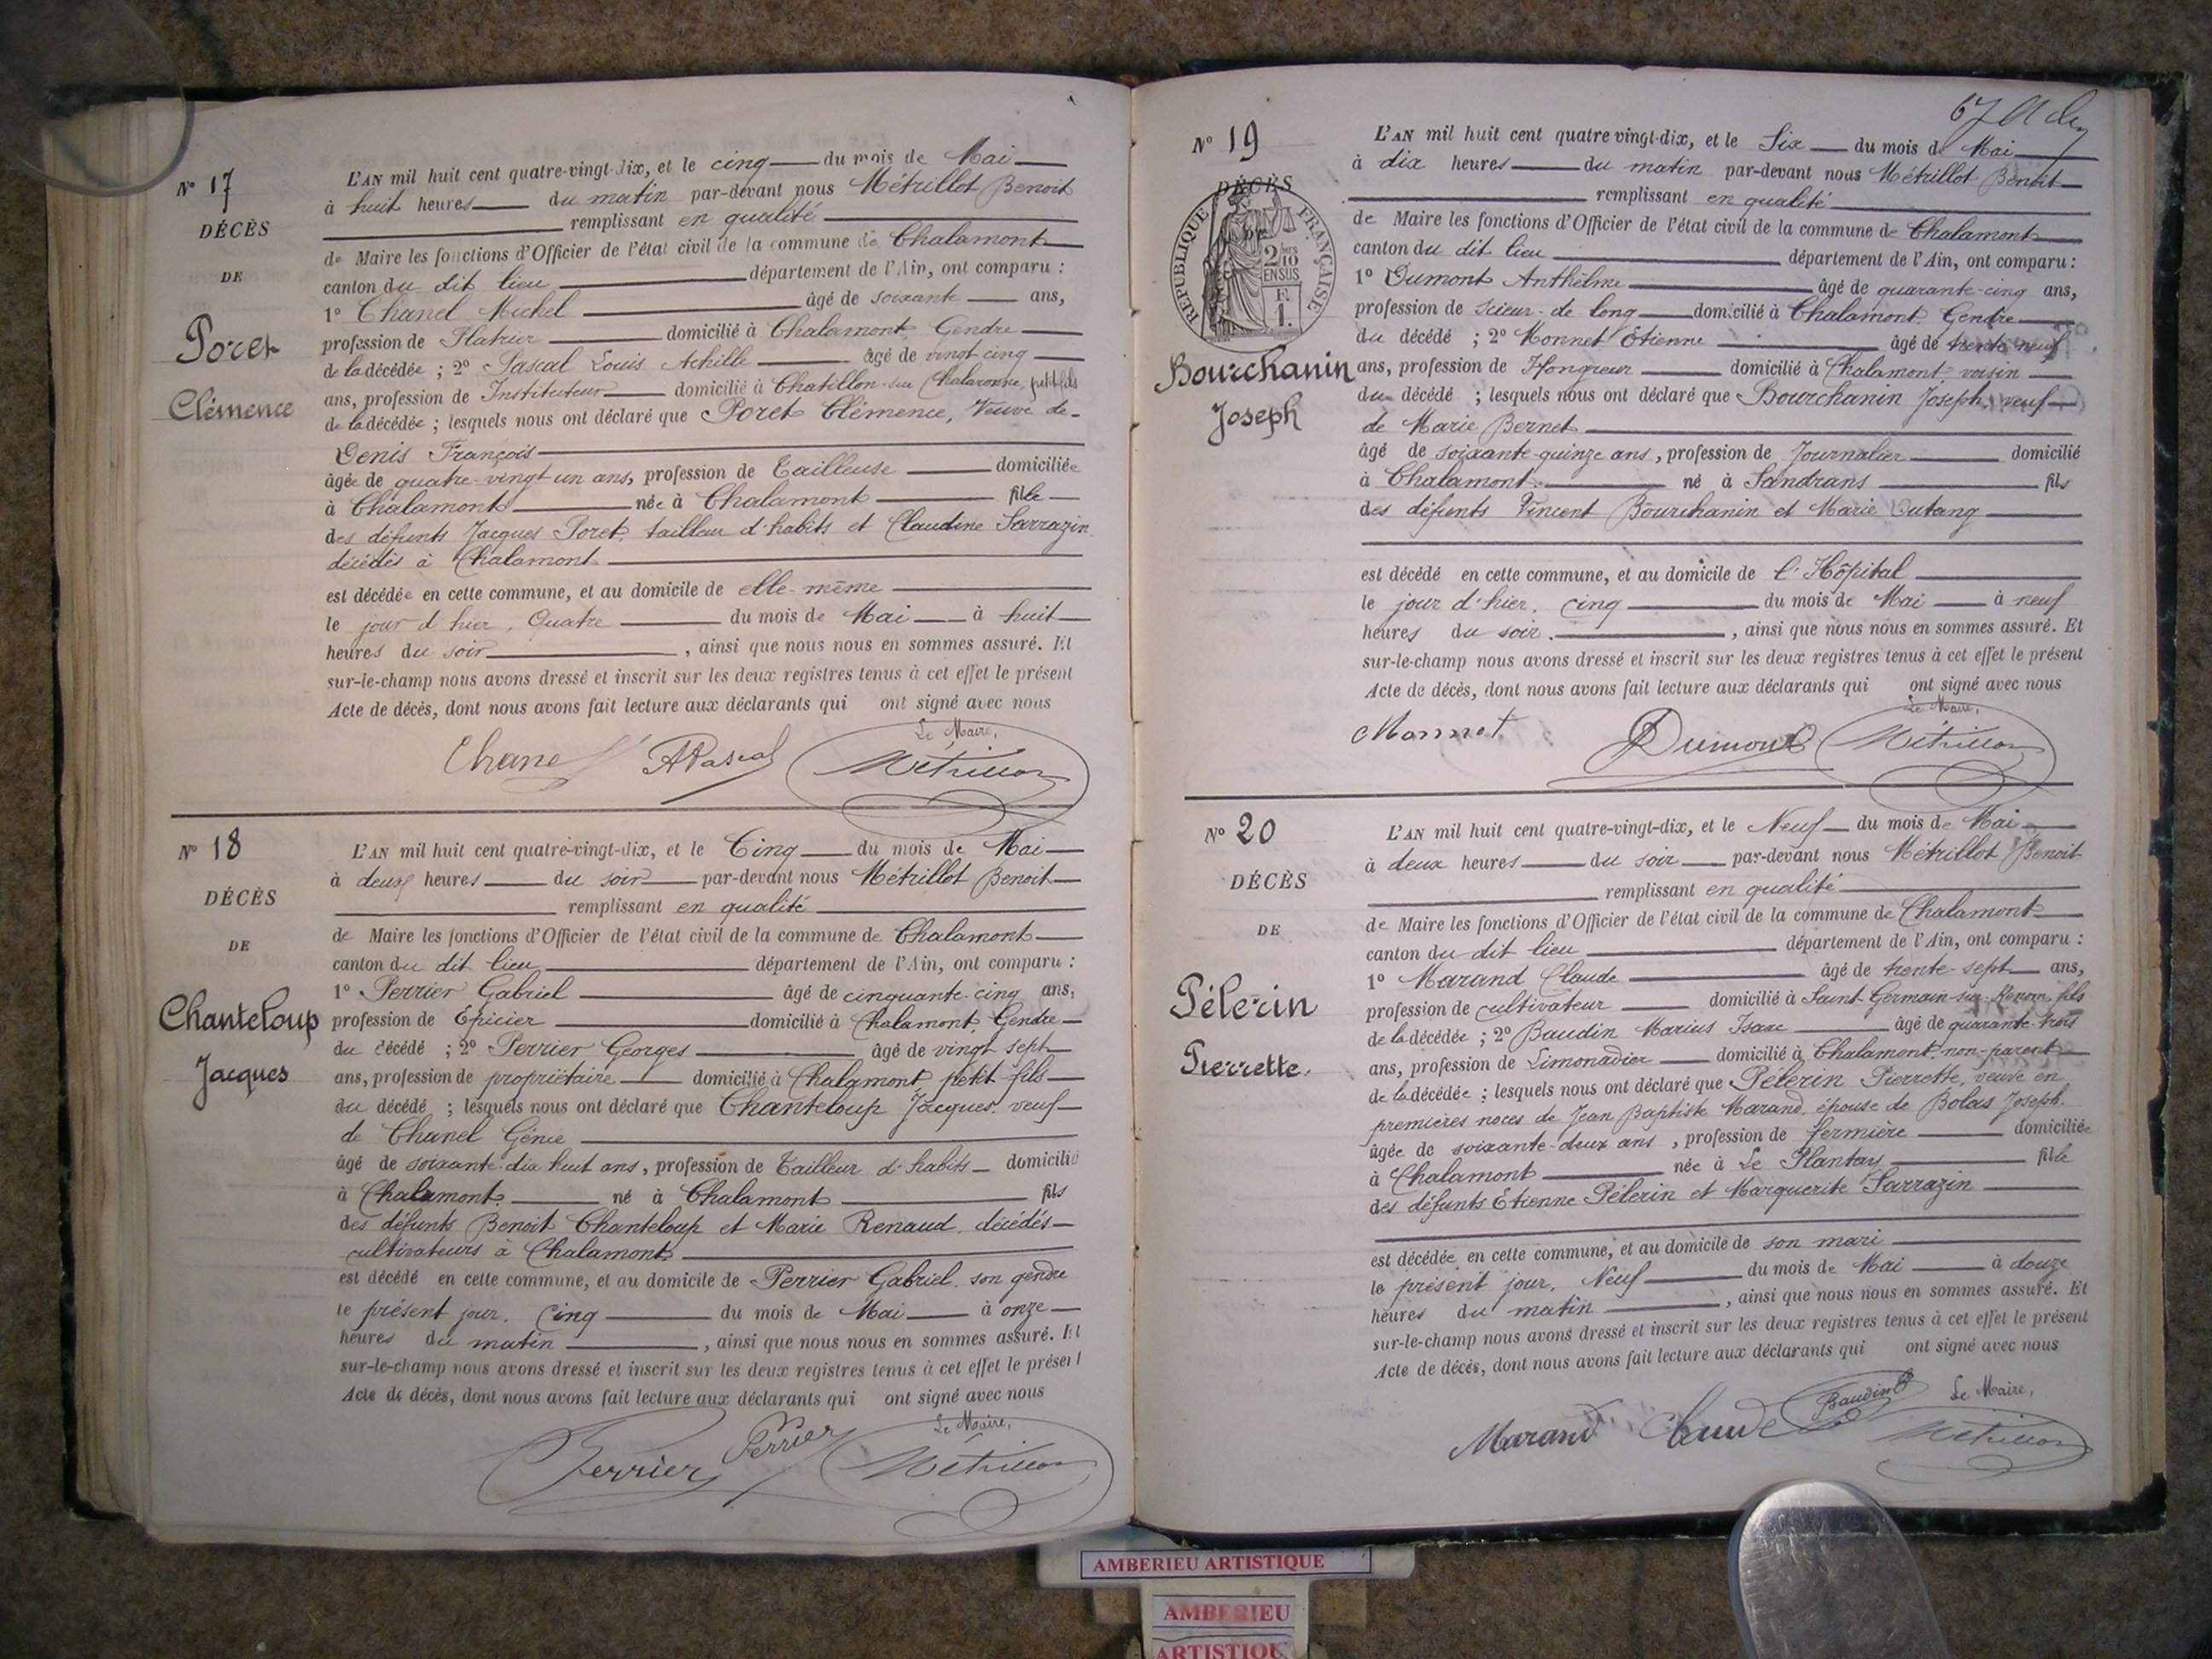 N° 17
DÉCÈS
DE
Poret
Clémence
L'AN mil huit cent quatre-vingt-dix, et le cinq du mois de Mai
à huit heures du matin par-devant nous Métrillot Benoit
remplissant en qualité
de Maire les fonctions d'Officier de l'état civil de la commune de Chalamont
canton du dit lieu département de l'Ain, ont comparu :
1° Chanel Michel âgé de soixante ans,
profession de Platrier domicilié à Chalamont Gendre
de la décédée ; 2° Pascal Louis Achille âgé de vingt cinq
ans, profession de Instituteur domicilié à Chatillon-sur Chalaronne, petit fils
de la décédée ; lesquels nous ont déclaré que Poret Clémence, Veuve de
Denis François
âgée de quatre-vingt un ans, profession de Tailleuse domiciliée
à Chalamont née à Chalamont fille
des défunts Jacques Poret, tailleur d'habits et Claudine Sarrazin
décédés à Chalamont
est décédée en cette commune, et au domicile de elle-même
le jour d'hier, Quatre du mois de Mai à huit
heures du soir , ainsi que nous nous en sommes assuré. Et
sur-le-champ nous avons dressé et inscrit sur les deux registres tenus à cet effet le présent
Acte de décès, dont nous avons fait lecture aux déclarants qui ont signé avec nous
Le Maire,
Chanel APascal Métrillot
N° 18
DÉCÈS
DE
Chanteloup
Jacques
L'AN mil huit cent quatre-vingt-dix, et le Cinq du mois de Mai
à deux heures du soir par-devant nous Métrillot Benoit
remplissant en qualité
de Maire les fonctions d'Officier de l'état civil de la commune de Chalamont
canton du dit lieu département de l'Ain, ont comparu :
1° Perrier Gabriel âgé de cinquante-cinq ans,
profession de Epicier domicilié à Chalamont, Gendre
du décédé ; 2° Perrier Georges âgé de vingt sept
ans, profession de propriétaire domicilié à Chalamont petit fils
du décédé ; lesquels nous ont déclaré que Chanteloup Jacques, veuf
de Chanel Génie
âgé de soixante-dix huit ans, profession de Tailleur d'habits domicilié
à Chalamont né à Chalamont fils
des défunts Benoit Chanteloup et Marie Renaud, décédés
cultivateurs à Chalamont
est décédé en cette commune, et au domicile de Perrier Gabriel, son gendre
le présent jour, Cinq du mois de Mai à onze
heures du matin , ainsi que nous nous en sommes assuré. Et
sur-le-champ nous avons dressé et inscrit sur les deux registres tenus à cet effet le présent
Acte de décès, dont nous avons fait lecture aux déclarants qui ont signé avec nous
Le Maire,
Perrier Perrier Métrillot
67
N° 19
DÉCÈS
DE
RÉPUBLIQUE FRANÇAISE
2/10
EN SUS
F.
1.
Bourchanin
Joseph
L'AN mil huit cent quatre vingt-dix, et le Six du mois de Mai
à dix heures du matin par-devant nous Métrillot Benoit
remplissant en qualité
de Maire les fonctions d'Officier de l'état civil de la commune de Chalamont
canton du dit lieu département de l'Ain, ont comparu :
1° Dumont Anthelme âgé de quarante-cinq ans,
profession de scieur-de long domicilié à Chalamont, Gendre
du décédé ; 2° Monnet Etienne âgé de trente neuf
ans, profession de Hongreur domicilié à Chalamont voisin
du décédé ; lesquels nous ont déclaré que Bourchanin Joseph, veuf
de Marie Bernet
âgé de soixante-quinze ans, profession de Journalier domicilié
à Chalamont né à Sandrans fils
des défunts Vincent Bourchanin et Marie Dutang
est décédé en cette commune, et au domicile de l'Hôpital
le jour d'hier, cinq du mois de Mai à neuf
heures du soir , ainsi que nous nous en sommes assuré. Et
sur-le-champ nous avons dressé et inscrit sur les deux registres tenus à cet effet le présent
Acte de décès, dont nous avons fait lecture aux déclarants qui ont signé avec nous
Le Maire,
Monnet Dumont Métrillot
N° 20
DÉCÈS
DE
Pélerin
Pierrette.
L'AN mil huit cent quatre-vingt-dix, et le Neuf du mois de Mai
à deux heures du soir par-devant nous Métrillot Benoit
remplissant en qualité
de Maire les fonctions d'Officier de l'état civil de la commune de Chalamont
canton du dit lieu département de l'Ain, ont comparu :
1° Marand Claude âgé de trente-sept ans,
profession de cultivateur domicilié à Saint-Germain-sur-Renom fils
de la décédée ; 2° Baudin Marius Isaac âgé de quarante-trois
ans, profession de Limonadier domicilié à Chalamont non-parent
de la décédée ; lesquels nous ont déclaré que Pélerin Pierrette, veuve en
premières noces de Jean Baptiste Marand, épouse de Bolas Joseph.
âgée de soixante-deux ans , profession de fermière domiciliée
à Chalamont née à Le Plantay fille
des défunts Etienne Pélerin et Marguerite Sarrazin
est décédée en cette commune, et au domicile de son mari
le présent jour, Neuf du mois de Mai à douze
heures du matin , ainsi que nous nous en sommes assuré. Et
sur-le-champ nous avons dressé et inscrit sur les deux registres tenus à cet effet le présent
Acte de décès, dont nous avons fait lecture aux déclarants qui ont signé avec nous
Le Maire,
Marand Claude Baudin Métrillot
AMBERIEU ARTISTIQUE
AMBERIEU
ARTISTIQUE